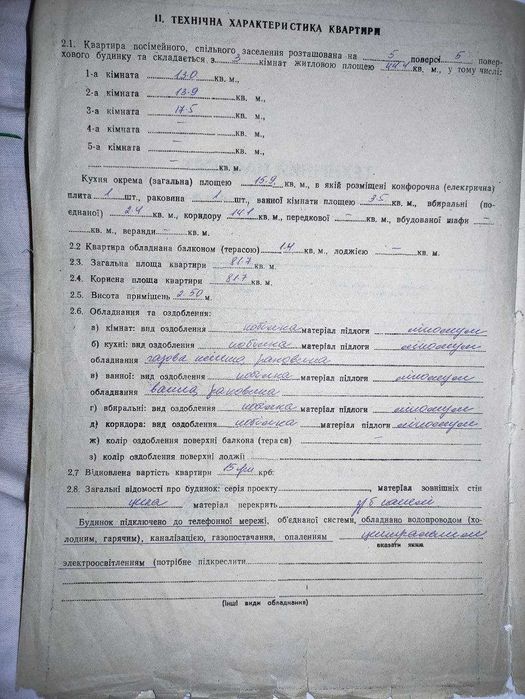 II. ТЕХНІЧНА ХАРАКТЕРИСТИКА КВАРТИРИ
2.1. Квартира посімейного, спільного заселення розташована на 5 поверсі 5 повер-
хового будинку та складається з 3 кімнат житловою площею 44.4 кв. м., у тому числі:
1-а кімната 13.0 кв. м.,
2-а кімната 13.9 кв. м.,
3-а кімната 17.5 кв. м.,
4-а кімната — кв. м.,
5-а кімната — кв. м.,
— кв. м.
Кухня окрема (загальна) площею 15.9 кв. м., в якій розміщені конфорочна (електрична)
плита 1 шт., раковина 1 шт., ванної кімнати площею 3.5 кв. м., вбиральні (по-
єднаної) 2.4 кв. м., коридору 14.1 кв. м., передкової — кв. м., вбудованої шафи —
кв. м., веранди — кв. м.
2.2 Квартира обладнана балконом (терасою) 1.4 кв. м., лоджією — кв. м.
2.3. Загальна площа квартири 81.7 кв. м.
2.4. Корисна площа квартири 81.7 кв. м.
2.5. Висота приміщень 2.50 м.
2.6. Обладнання та оздоблення:
а) кімнат: вид оздоблення побілка матеріал підлоги лінолеум
б) кухні: вид оздоблення побілка матеріал підлоги лінолеум
обладнання газова плита, раковина
в) ванної: вид оздоблення побілка матеріал підлоги лінолеум
обладнання ванна, раковина
г) вбиральні: вид оздоблення побілка матеріал підлоги лінолеум
д) коридора: вид оздоблення побілка матеріал підлоги лінолеум
ж) колір оздоблення поверхні балкона (тераси)
з) колір оздоблення поверхні лоджії
2.7 Відновлена вартість квартири крб:
2.8. Загальні відомості про будинок: серія проекту , матеріал зовнішніх стін
цегла матеріал перекрить з/б панелі
Будинок підключено до телефонної мережі, об'єднаної систем, обладнано водопроводом (хо-
лодним, гарячим), каналізацією, газопостачання, опаленням центральним
вказати яким
електроосвітленням (потрібне підкреслити
(інші види обладнання)